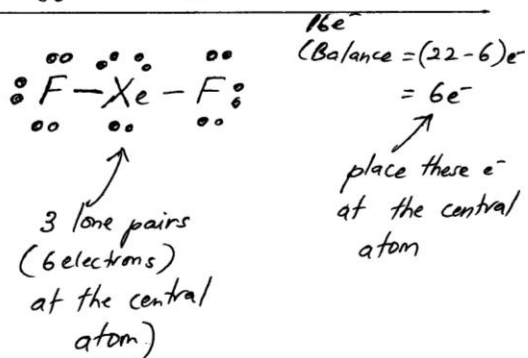 F – Xe – F
3 lone pairs
(6 electrons)
at the central
atom)
16e⁻
(Balance = (22-6)e⁻
= 6e⁻
place these e⁻
at the central
atom